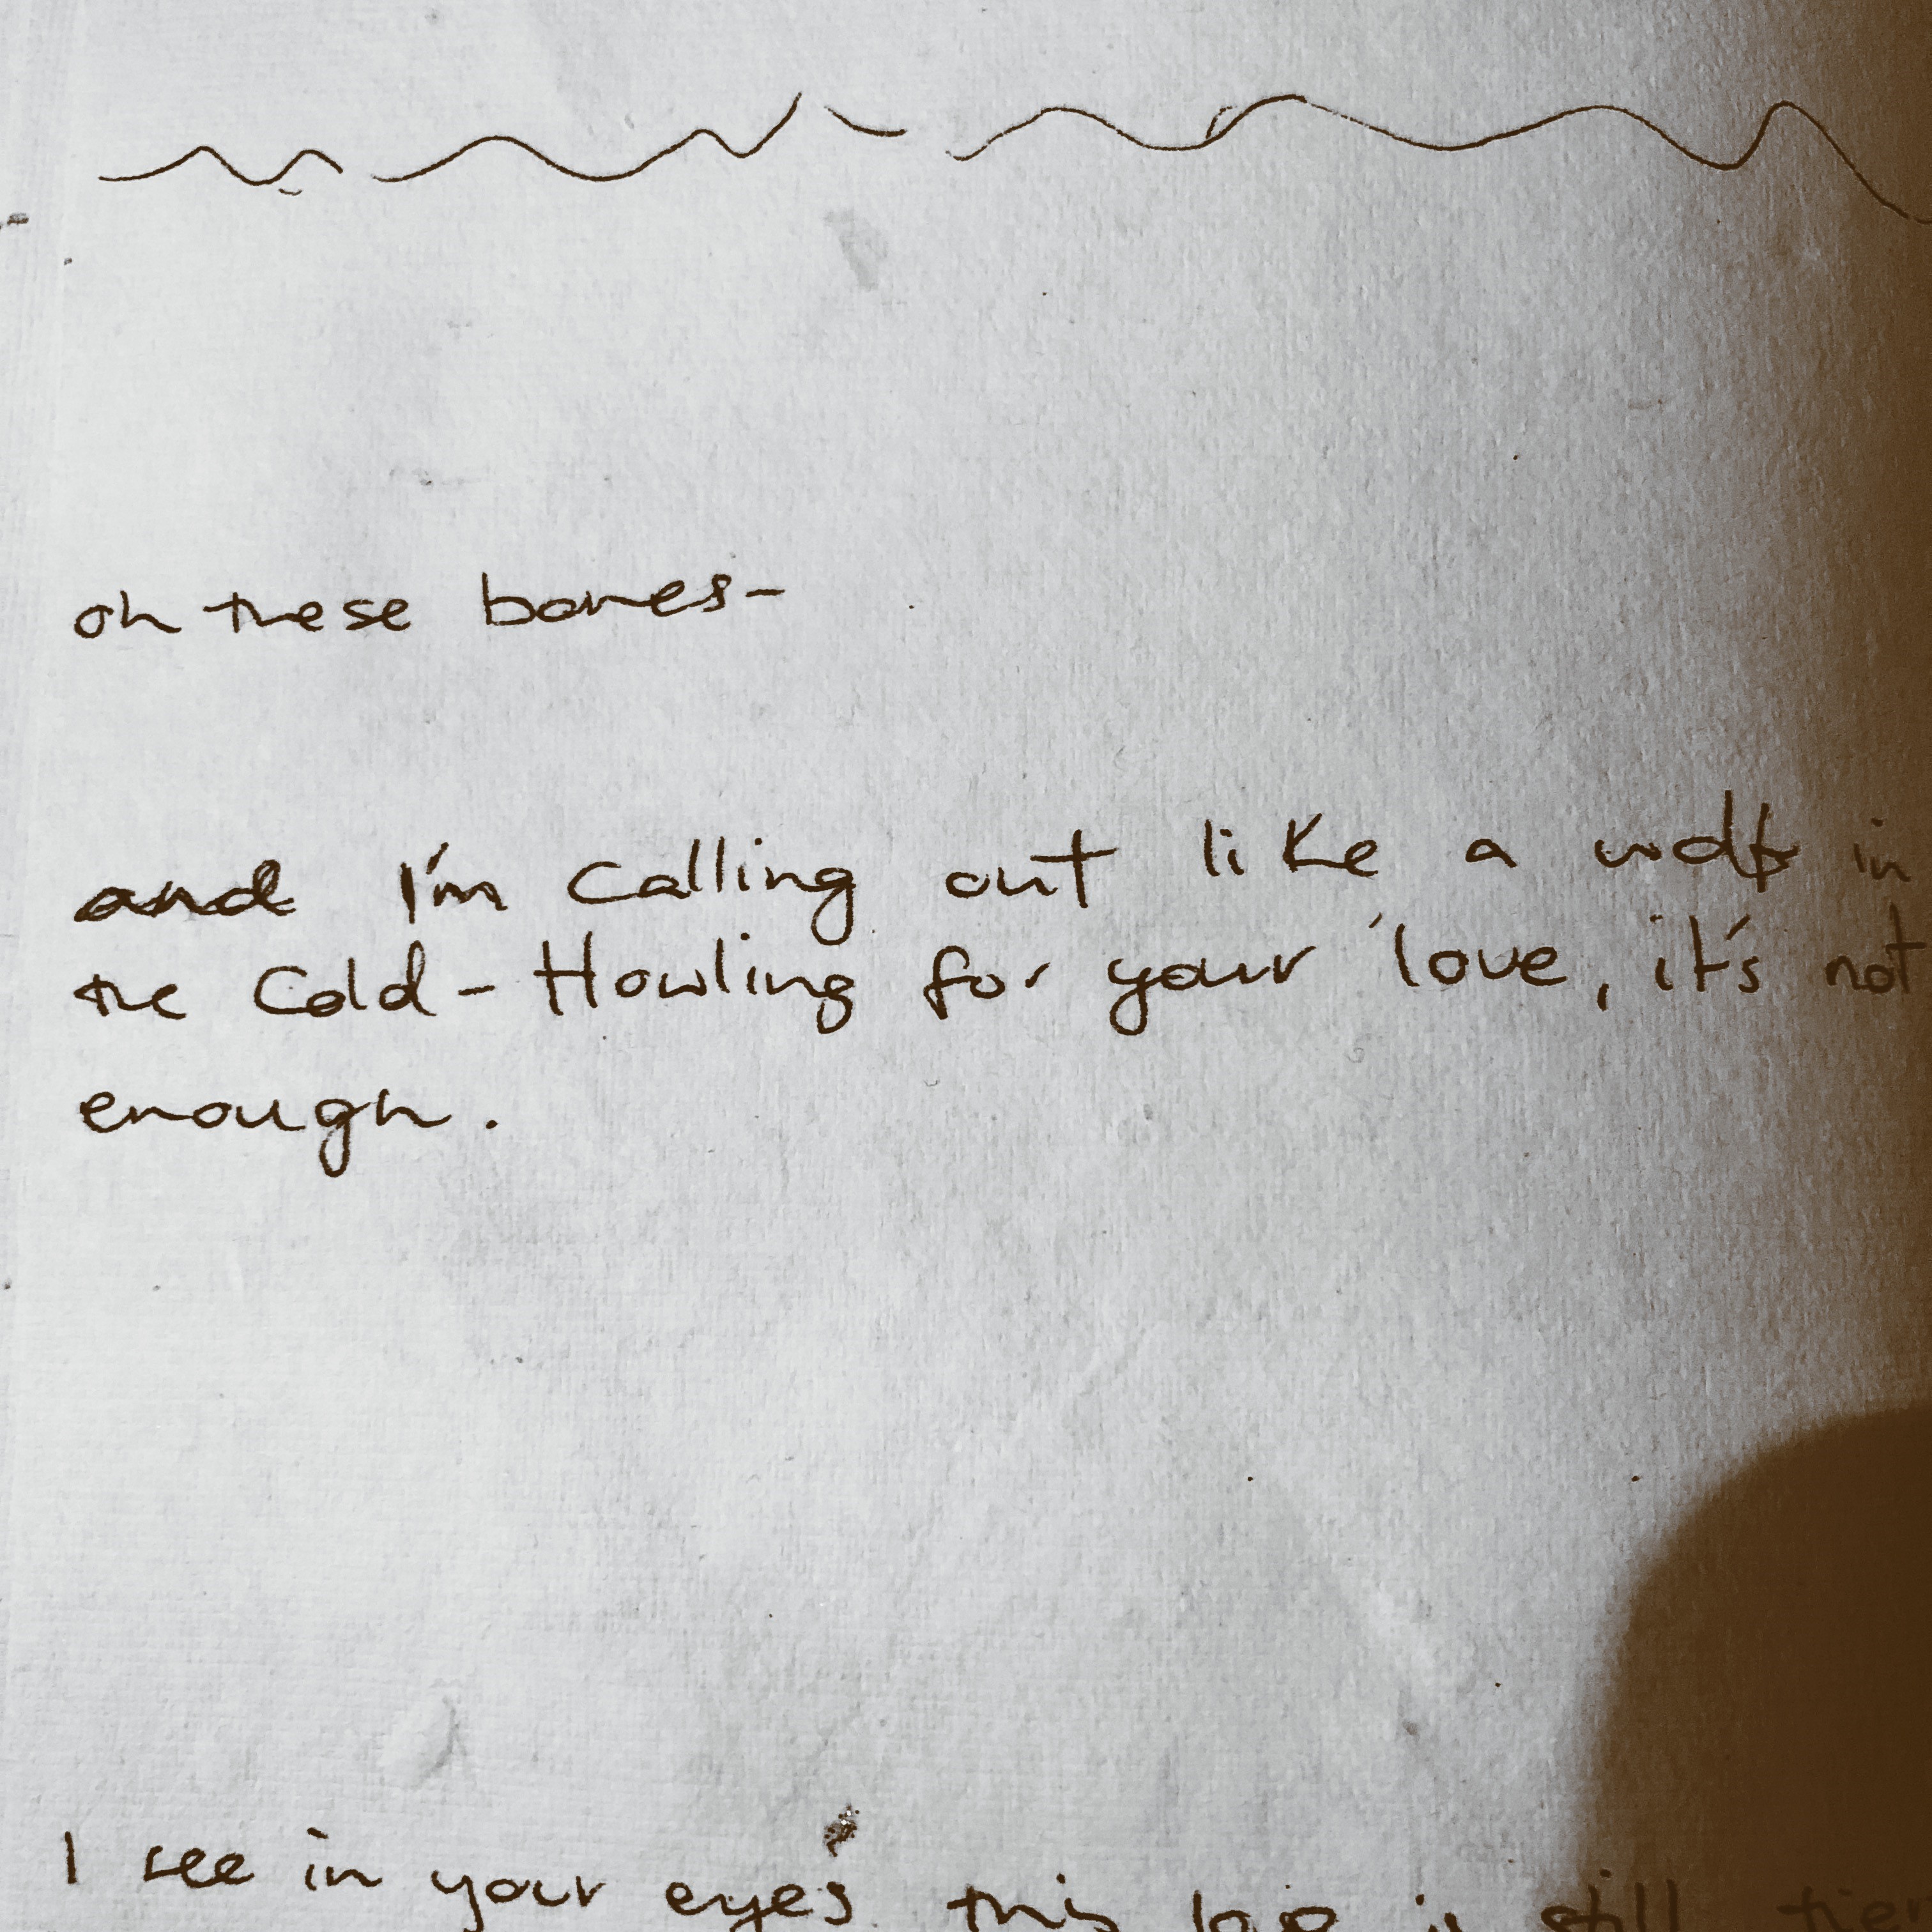 oh these bones-
and I'm calling out like a wolf in
the Cold - Howling for your love, it's not
enough.
I see in your eyes this is still